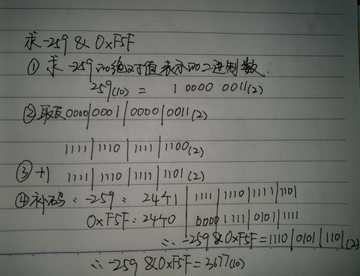 求-259 & 0xF5F
① 求 -259的绝对值表示的二进制数.
259(10) = 1 0000 0011(2)
②取反 0000|0001|0000|0011(2)
1111|1110|1111|1100(2)
③ +1 1111|1110|1111|1101(2)
④补码: -259: 2进制 1111|1110|1111|1101
0xF5F: 2进制 0000|1111|0101|1111
∴ -259 & 0xF5F = 1110|0101|1101(2)
∴ -259 & 0xF5F = 3677(10)